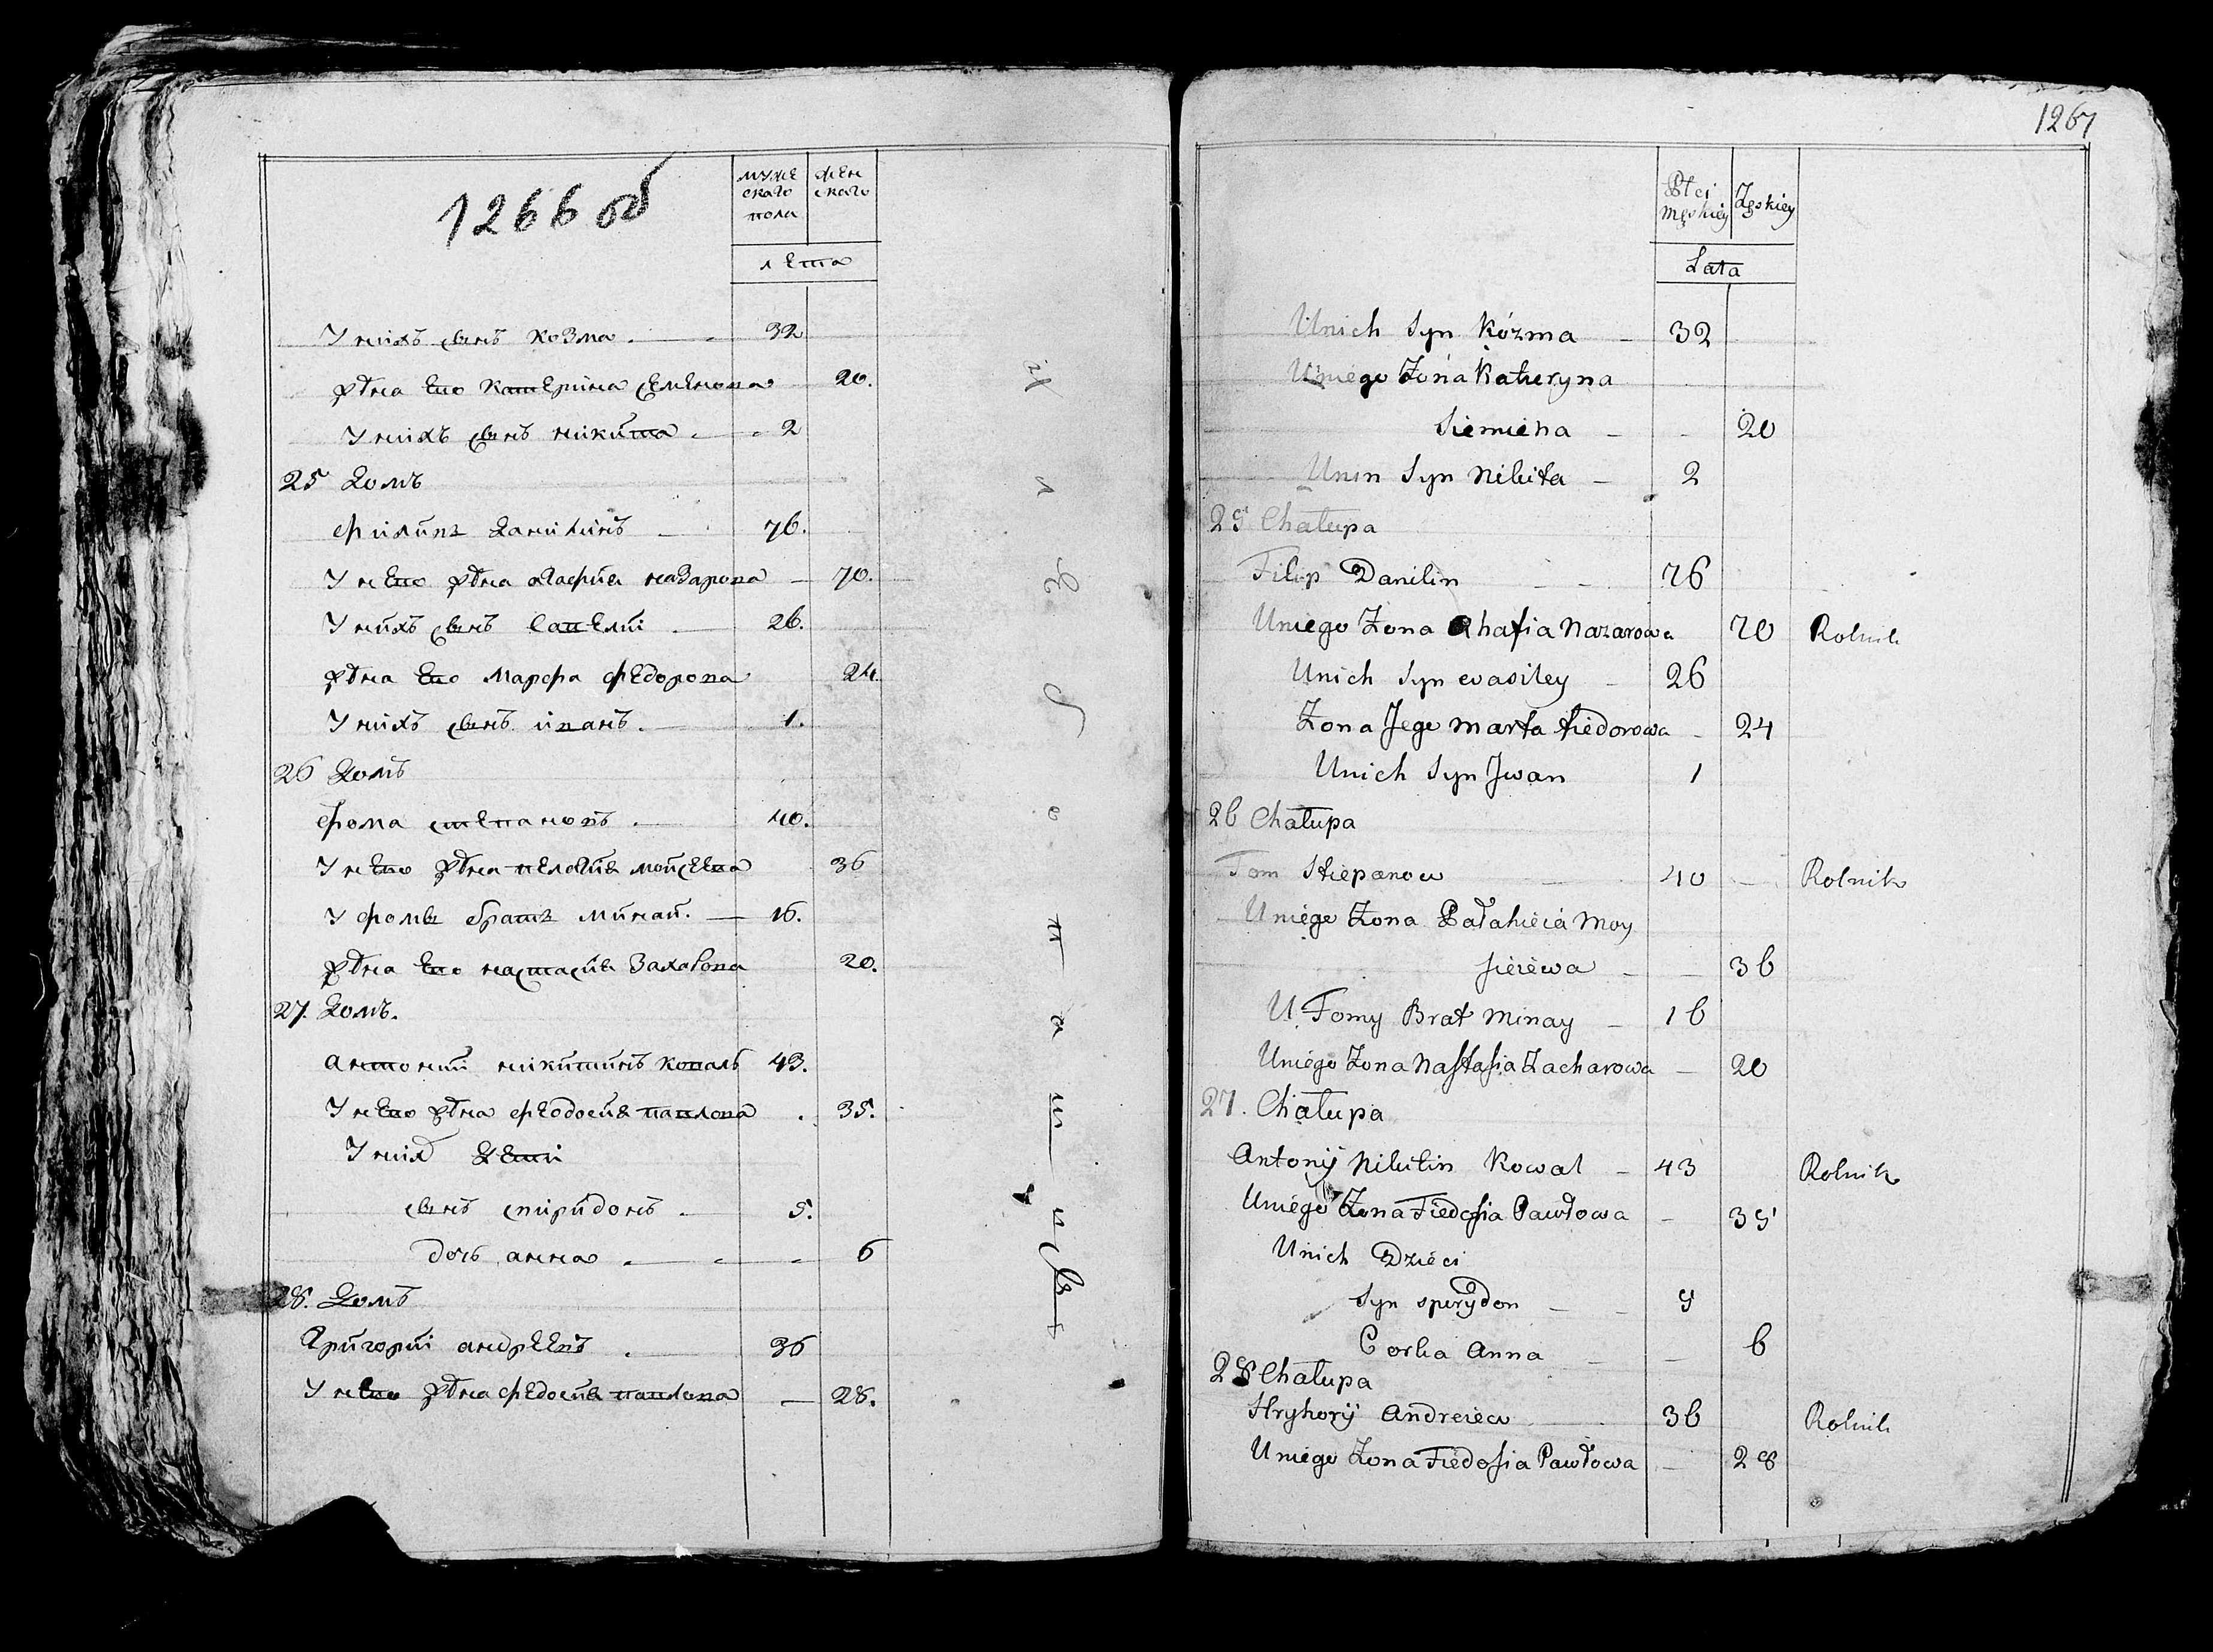 1266 об
муже
скаго
пола
жен
скаго
лета
У нихъ сынъ козма . 32
жена его катерина семенова 20.
У нихъ сынъ никита . 2
25 домъ
филипъ данилинъ 76.
У него жена агафия назарова 70.
У нихъ сынъ василий . 26.
жена его марфа федорова 24.
У нихъ сынъ иванъ . 1.
26 домъ
фома степановъ . 40.
У него жена пелагия мойсеева 36
У фомы братъ минай . 16.
жена его настасия захарова 20.
27. домъ.
антоний никитинъ коваль 43.
У него жена феодосия павлова . 35.
У них дети
сынъ спиридонъ . 5.
дочь анна . 6
28. домъ
григорий андреевъ . 36
У него жена федосия павлова 28.
1267
Płci
męskiey
Żęskiey
Lata
Unich Syn Kózma 32
Uniego Żona Katieryna
Siemiena 20
Unin Syn Nikita 2
25 Chałupa
Filip Danilin 76
Uniego Żona Ahafia Nazarowa 70 Rolnik
Unich Syn wasiley 26
Żona Jego Marta fiedorowa 24
Unich Syn Jwan 1
26 Chałupa
Tom Stiepanow 40 Rolnik
Uniego Żona Pałahieia Moy
sieiewa 36
U Fomy Brat Minay 16
Uniego Żona Nastasia Zacharowa 20
27. Chałupa
Antonij Nikitin Kowal 43 Rolnik
Uniego Żona Fiedosia Pawłowa 35
Unich Dzieci
Syn spirydon 5
Corka Anna 6
28 Chałupa
Hryhorij Andreiew 36 Rolnik
Uniego Żona Fiedosia Pawłowa 28